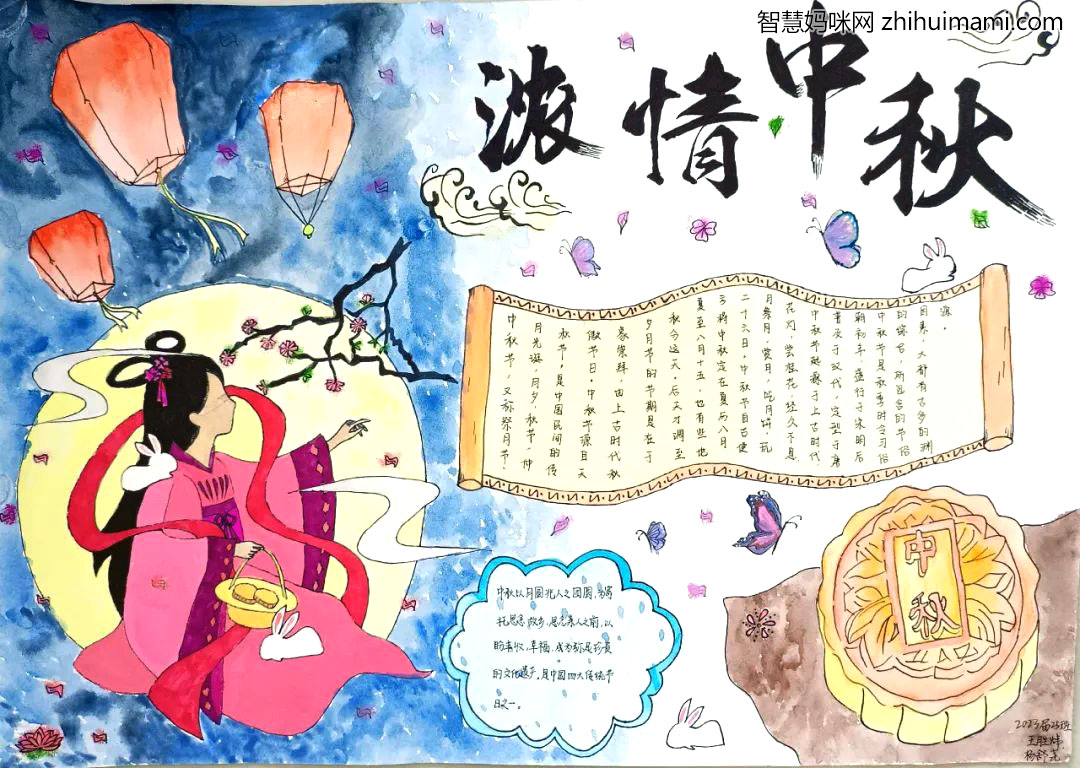 智慧妈咪网 zhihuimami.com
浓情中秋
中秋节，又称祭月节、
月光诞、月夕、秋节、仲
秋节，是中国民间的传
节日。中秋节源自天
象崇拜，由上古时代秋
夕月节的节期是在干
秋分这天，后才调至
夏至八月十五，也有些地
方将中秋定在夏历八月
二十六日。中秋节自古便
月祭月，赏月，吃月饼，玩
花灯，赏桂花，经久不息
中秋节起源于上古时代，
普及于汉代，定型于唐
朝初年，盛行于宋明后
中秋节是秋季时令习俗
的综合，所包含的节俗
因素，大都有古老的渊
源。
中秋以月圆兆人之团圆，为寄
托思念故乡，思念亲人之情，以
盼丰收，幸福，成为弥足珍贵
的文化遗产，是中国四大传统节
日之一。
中秋
2023届25班
王胜炜